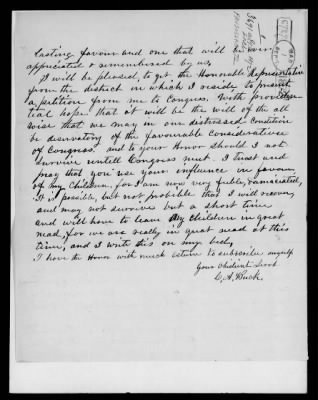 lasting favour and one that will be ever
appreciated & remembered by us.
I will be pleased, to get the Honorable Representative
from the district in which I reside to present
a petition from me to Congress. With providen-
tial hope that it will be the will of the all
wise that we may in our distressed condition
be deserving of the favourable consideration
of Congress. and to your Honor should I not
survive untill Congress meet. I trust and
pray that you use your influence in favour
of my children, for I am now very feeble, & emaciated,
It is possible, but not probable that I will recover,
and may not survive but a short time
and will have to leave my children in great
need, for we are really in great need at this
time, and I write this on my bed,
I have the Honor with much esteem to subscribe myself
Your obdient Servt
C. A. Buck